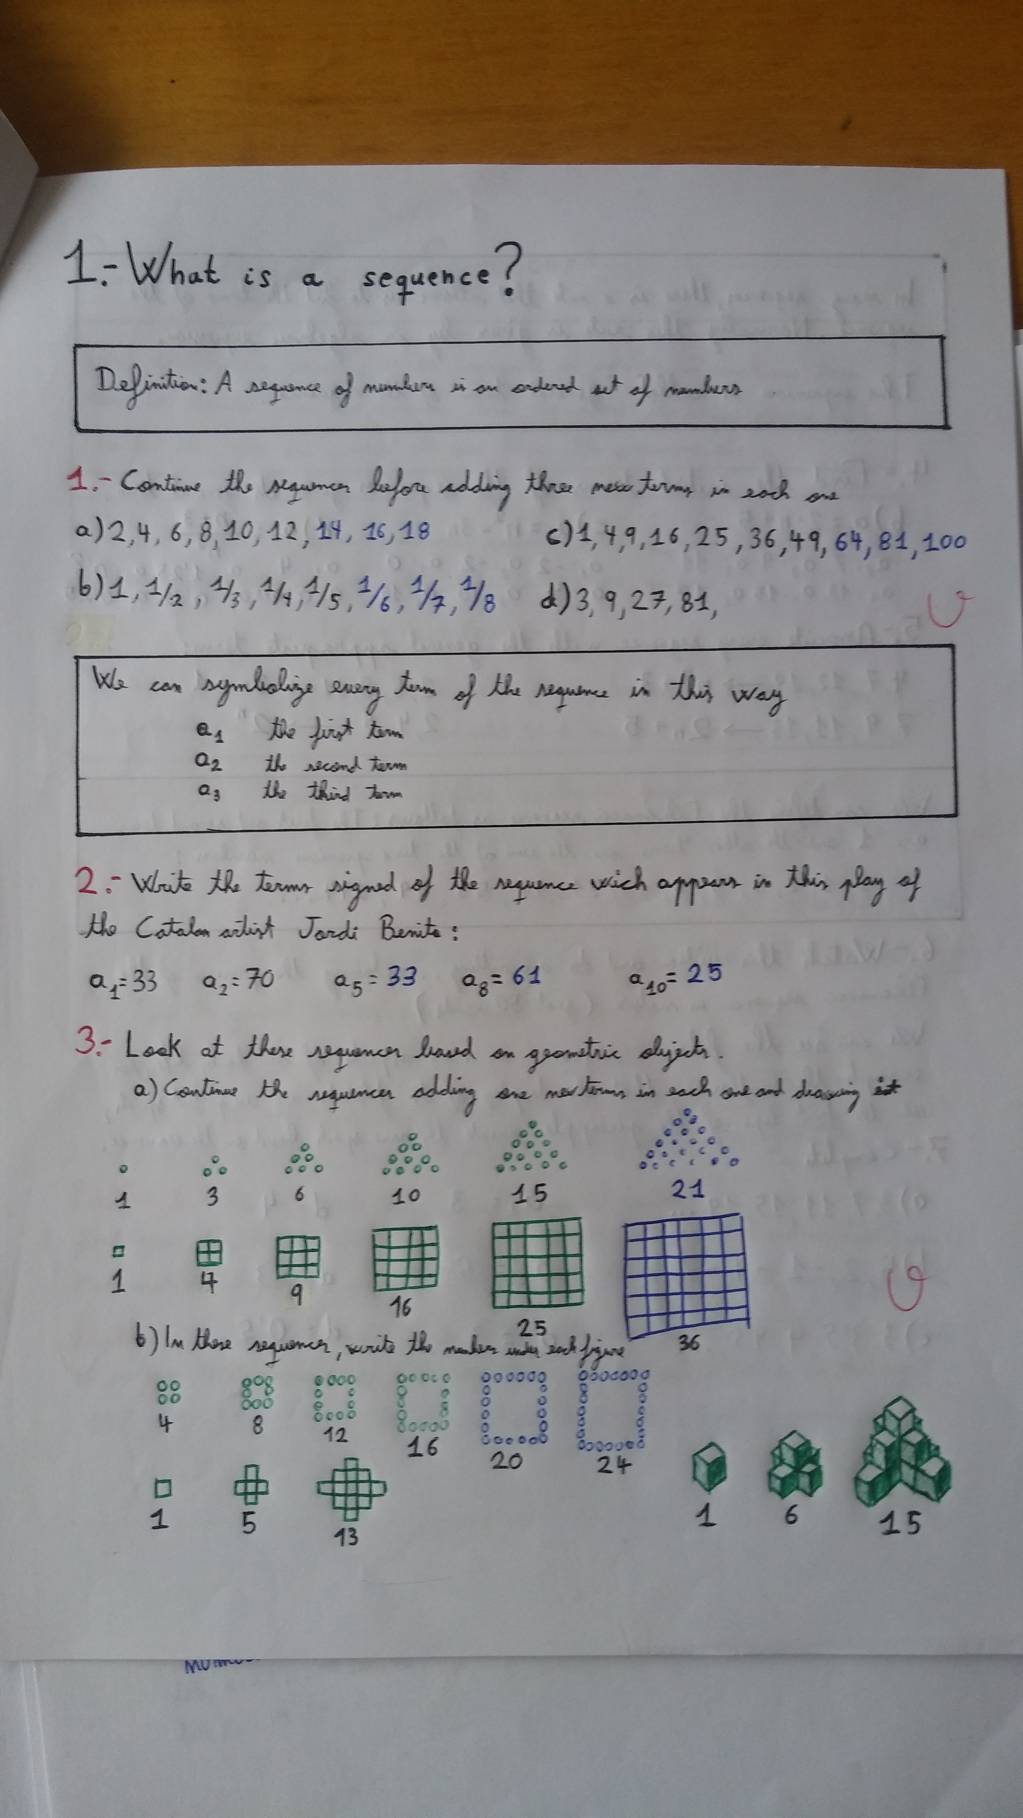 1.- What is a sequence?
Definition: A sequence of numbers is an ordered set of numbers
1.- Continue the sequences before adding three new terms in each one
a) 2, 4, 6, 8, 10, 12, 14, 16, 18
c) 1, 4, 9, 16, 25, 36, 49, 64, 81, 100
b) 1, 1/2, 1/3, 1/4, 1/5, 1/6, 1/7, 1/8
d) 3, 9, 27, 81,
We can symbolize every term of the sequence in this way
a1 the first term
a2 the second term
a3 the third term
2.- Write the terms signed of the sequence wich appears in this play of
the Catalan artist Jordi Benito:
a1=33 a2=70 a5=33 a8=61 a10=25
3.- Look at these sequences based on geometric objects.
a) Continue the sequences adding one new terms in each one and drawing it
1 3 6 10 15 21
1 4 9 16 25 36
b) In these sequences, write the numbers under each figure
4 8 12 16 20 24
1 5 13
1 6 15